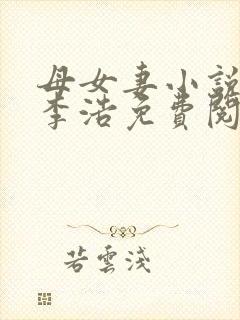 母女妻小說
李浩免費閱
若雲淺